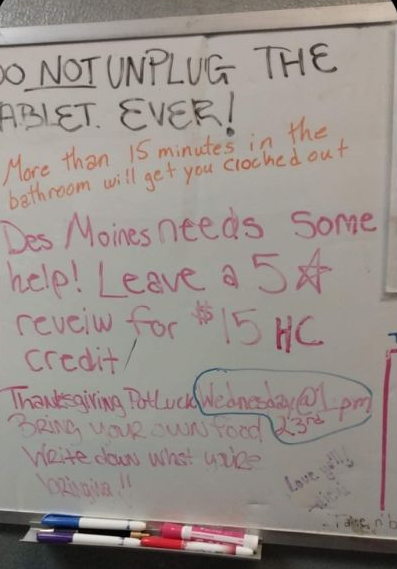 DO NOT UNPLUG THE
TABLET. EVER!
More than 15 minutes in the
bathroom will get you clocked out
Des Moines needs some
help! Leave a 5 ☆
reveiw for $15 HC
credit!
Thanksgiving PotLuck Wednesday @ 1 pm
Bring your own food 23rd
Write down what you're
bringing!!
Love you!!